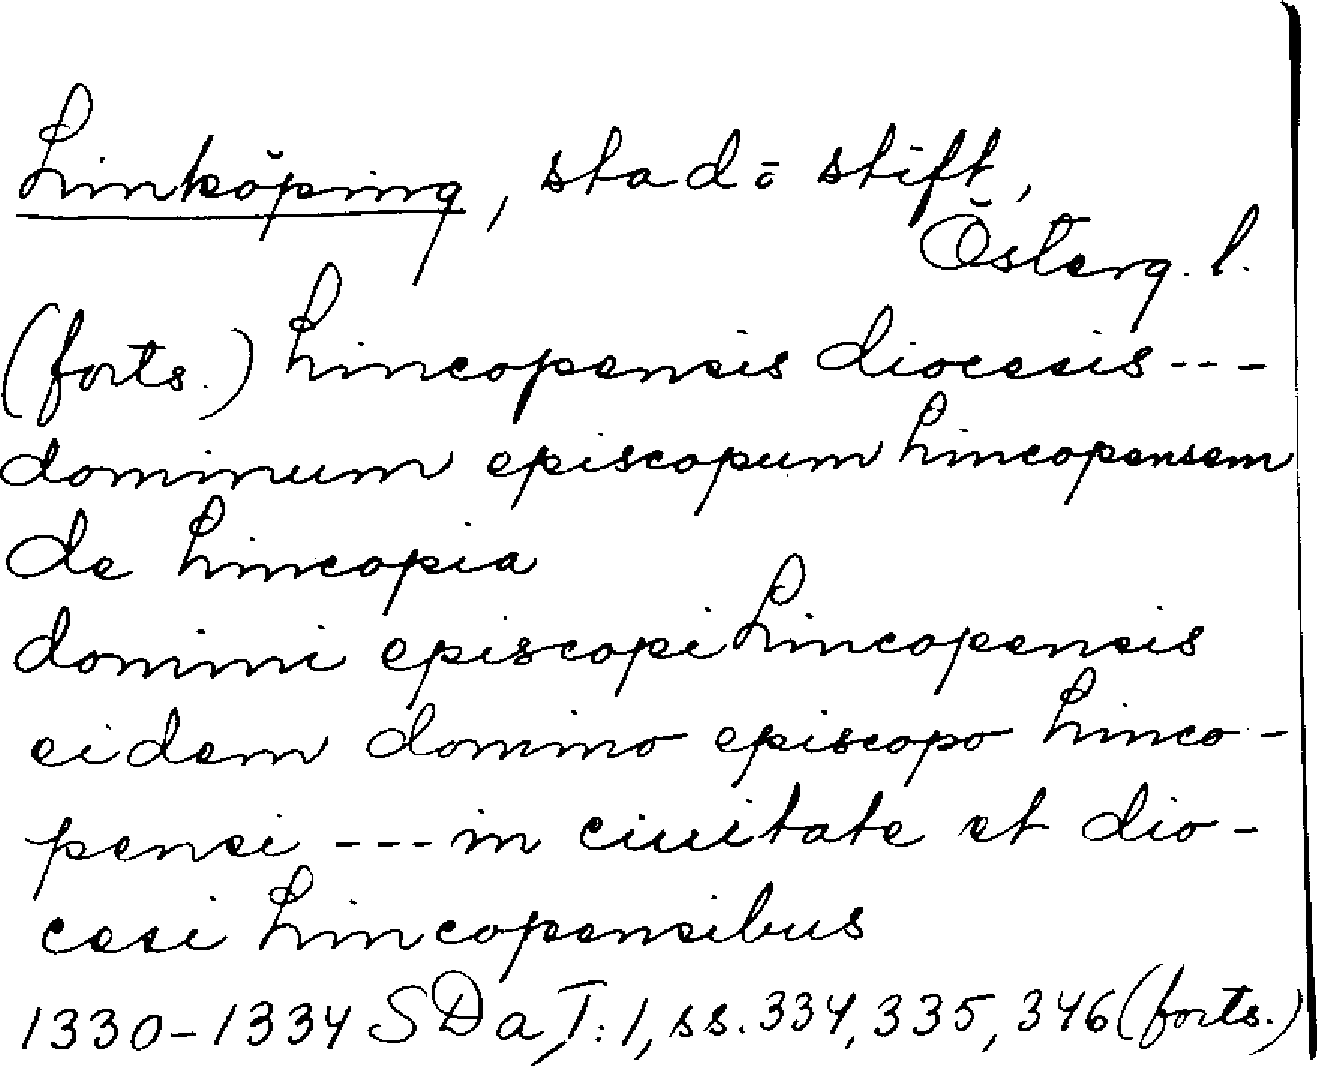 Linköping, stad o stift,
Österg. l.
(forts.) Lincopensis diocesis ---
dominum episcopum Lincopensem
de Lincopia
domini episcopi Lincopensis
eidem domino episcopo Linco-
pensi --- in ciuitate et dio-
cesi Lincopensibus
1330-1334 SDa, I:1, ss. 334, 335, 346 (forts.)